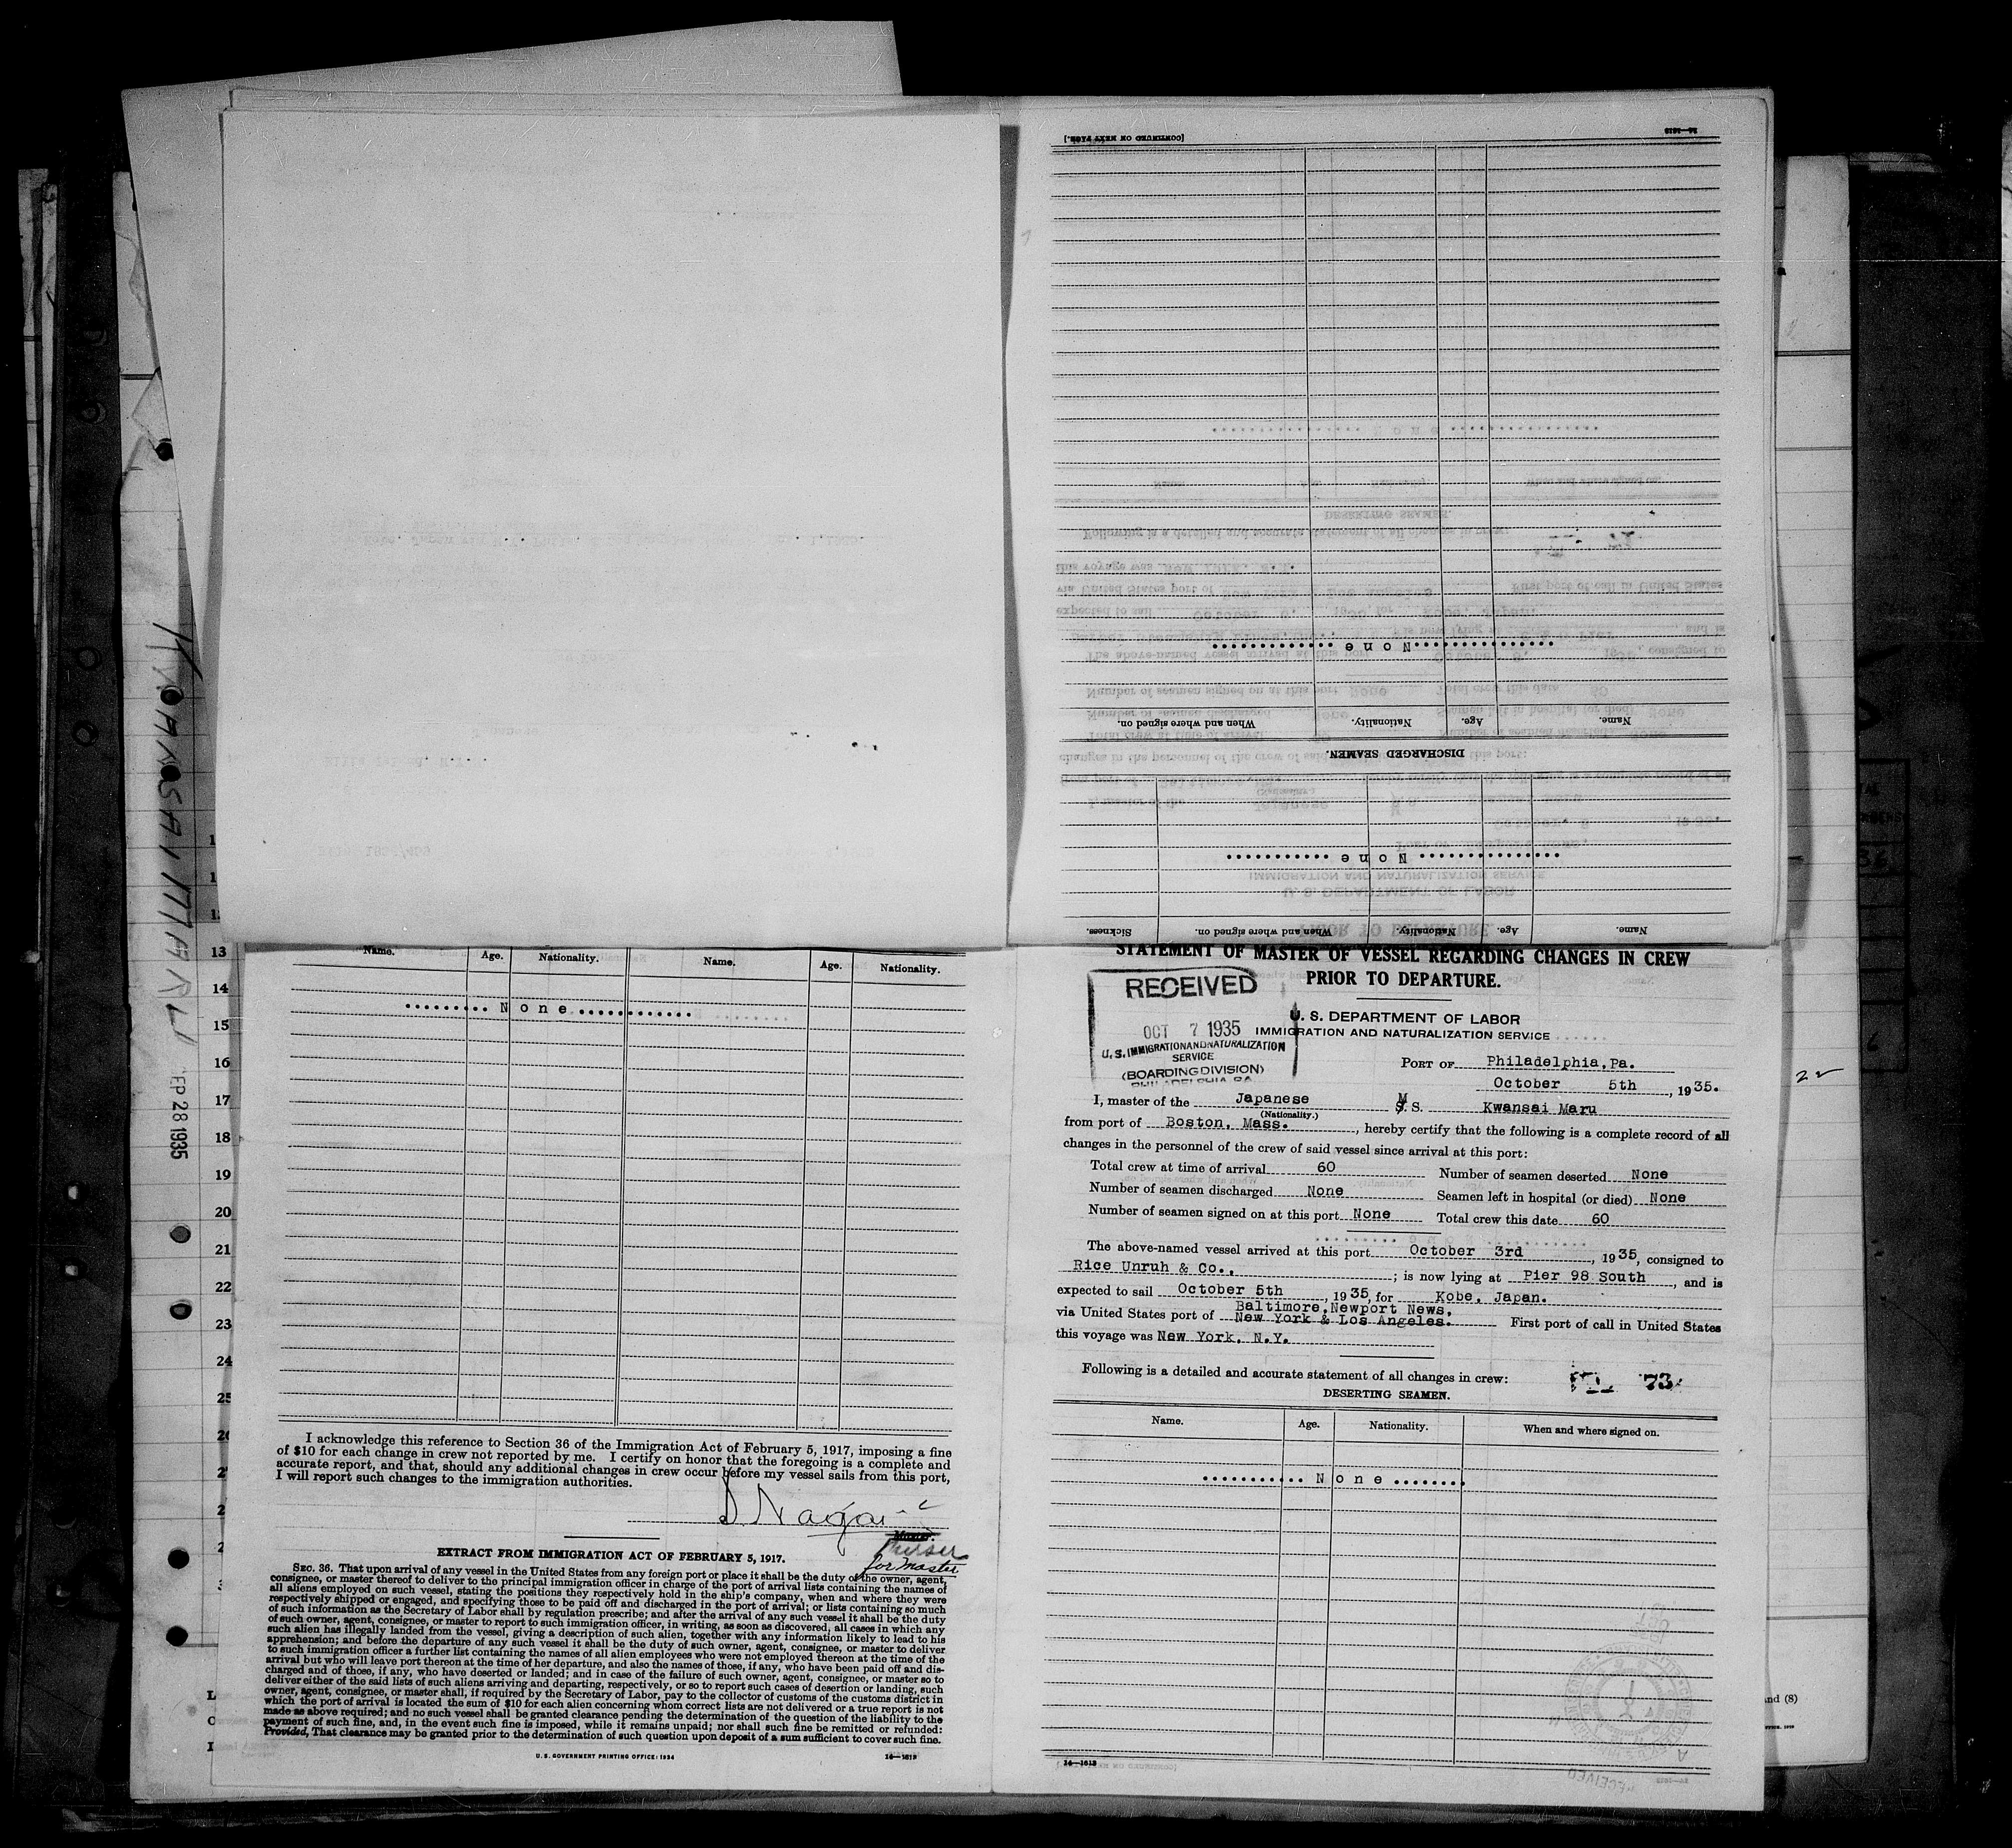 [CONTINUED ON NEXT PAGE.]
14—1613
None
When and where signed on. Nationality. Age. Name.
DISCHARGED SEAMEN.
None
Sickness. When and where signed on. Nationality. Age. Name.
KWANSAI MARU
SEP 28 1935
13
14
15
16
17
18
19
20
21
22
23
24
25
Name. Age. Nationality. Name. Age. Nationality.
None
I acknowledge this reference to Section 36 of the Immigration Act of February 5, 1917, imposing a fine
of $10 for each change in crew not reported by me. I certify on honor that the foregoing is a complete and
accurate report, and that, should any additional changes in crew occur before my vessel sails from this port,
I will report such changes to the immigration authorities.
Nagai
Master.
Purser
for master
EXTRACT FROM IMMIGRATION ACT OF FEBRUARY 5, 1917.
SEC. 36. That upon arrival of any vessel in the United States from any foreign port or place it shall be the duty of the owner, agent,
consignee, or master thereof to deliver to the principal immigration officer in charge of the port of arrival lists containing the names of
all aliens employed on such vessel, stating the positions they respectively hold in the ship's company, when and where they were
respectively shipped or engaged, and specifying those to be paid off and discharged in the port of arrival; or lists containing so much
of such information as the Secretary of Labor shall by regulation prescribe; and after the arrival of any such vessel it shall be the duty
of such owner, agent, consignee, or master to report to such immigration officer, in writing, as soon as discovered, all cases in which any
such alien has illegally landed from the vessel, giving a description of such alien, together with any information likely to lead to his
apprehension; and before the departure of any such vessel it shall be the duty of such owner, agent, consignee, or master to deliver
to such immigration officer a further list containing the names of all alien employees who were not employed thereon at the time of the
arrival but who will leave port thereon at the time of her departure, and also the names of those, if any, who have been paid off and dis-
charged and of those, if any, who have deserted or landed; and in case of the failure of such owner, agent, consignee, or master so to
deliver either of the said lists of such aliens arriving and departing, respectively, or so to report such cases of desertion or landing, such
owner, agent, consignee, or master shall, if required by the Secretary of Labor, pay to the collector of customs of the customs district in
which the port of arrival is located the sum of $10 for each alien concerning whom correct lists are not delivered or a true report is not
made as above required; and no such vessel shall be granted clearance pending the determination of the question of the liability to the
payment of such fine, and, in the event such fine is imposed, while it remains unpaid; nor shall such fine be remitted or refunded:
Provided, That clearance may be granted prior to the determination of such question upon deposit of a sum sufficient to cover such fine.
U. S. GOVERNMENT PRINTING OFFICE: 1934
14—1613
STATEMENT OF MASTER OF VESSEL REGARDING CHANGES IN CREW
PRIOR TO DEPARTURE.
RECEIVED
OCT 7 1935
U. S. IMMIGRATION AND NATURALIZATION
SERVICE
(BOARDING DIVISION)
PHILADELPHIA PA.
U. S. DEPARTMENT OF LABOR
IMMIGRATION AND NATURALIZATION SERVICE
PORT OF Philadelphia, Pa.
October 5th, 1935.
I, master of the Japanese M S. S. Kwansai Maru
(Nationality.)
from port of Boston, Mass., hereby certify that the following is a complete record of all
changes in the personnel of the crew of said vessel since arrival at this port:
Total crew at time of arrival 60 Number of seamen deserted None
Number of seamen discharged None Seamen left in hospital (or died) None
Number of seamen signed on at this port None Total crew this date 60
The above-named vessel arrived at this port October 3rd, 1935, consigned to
Rice Unruh & Co., ; is now lying at Pier 98 South, and is
expected to sail October 5th, 1935, for Kobe, Japan.
via United States port of Baltimore, Newport News, New York & Los Angeles. First port of call in United States
this voyage was New York, N.Y.
Following is a detailed and accurate statement of all changes in crew:
73
DESERTING SEAMEN.
Name. Age. Nationality. When and where signed on.
None
14—1613
nd (8)